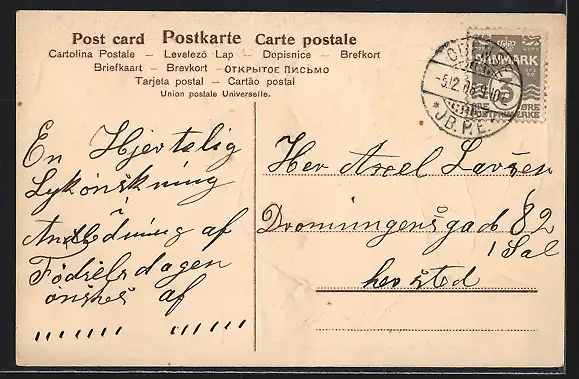 Post card Postkarte Carte postale
Cartolina Postale — Levelező Lap — Dopisnice — Brefkort
Briefkaart — Brevkort — ОТКРЫТОЕ ПИСЬМО
Tarjeta postal — Cartão postal
Union postale Universelle.
DANMARK
5
ØRE ØRE
POSTFRIMÆRKE
J.B.P.E.
En Hjertelig
Lykönskning
i
Anledning af
Födselsdagen
önskes af
Her Axel Larsen
Dronningensgad 82
1 Sal
hersted